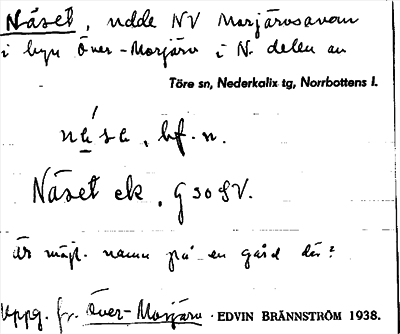 Näset, udde NV Morjärvsavan
i byn Över-Morjärv i N. delen av
Töre sn, Nederkalix tg, Norrbottens l.
bf. n.
Näset ek. G 30 SV.
är möjl. namn på en gård där?
Uppg. fr. Över-Morjärv · EDVIN BRÄNNSTRÖM 1938.